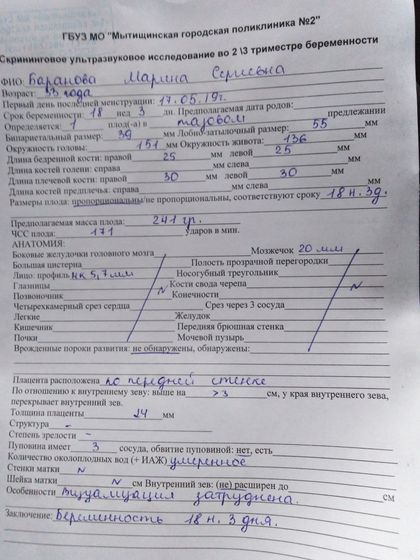 ГБУЗ МО "Мытищинская городская поликлиника №2"
Скрининговое ультразвуковое исследование во 2 \3 триместре беременности
ФИО Баранова Марина Сергеевна
Возраст: 33 года
Первый день последней менструации: 17.05.19г.
Срок беременности: 18 нед 3 дн. Предполагаемая дата родов:
Определяется: 1 плод(-а) в тазовом предлежании
Бипариетальный размер: 39 мм Лобно-затылочный размер: 55 мм
Окружность головы: 151 мм Окружность живота: 136 мм
Длина бедренной кости: правой 25 мм левой 25 мм
Длина костей голени: справа мм слева мм
Длина плечевой кости: правой 30 мм левой 30 мм
Длина костей предплечья: справа мм слева мм
Размеры плода: пропорциональны/не пропорциональны, соответствуют сроку 18 н. 3д.
Предполагаемая масса плода: 241 гр.
ЧСС плода: 171 ударов в мин.
АНАТОМИЯ:
Боковые желудочки головного мозга Мозжечок 20 мм
Большая цистерна Полость прозрачной перегородки
Лицо: профиль НК 5,7 мм Носогубный треугольник
Глазницы Кости свода черепа
Позвоночник Конечности
Четырехкамерный срез сердца Срез через 3 сосуда
Легкие Желудок
Кишечник Передняя брюшная стенка
Почки Мочевой пузырь
Врожденные пороки развития: не обнаружены, обнаружены:
Плацента расположена по передней стенке
По отношению к внутреннему зеву: выше на >3 см, у края внутреннего зева,
перекрывает внутренний зев.
Толщина плаценты 24 мм
Структура –
Степень зрелости –
Пуповина имеет 3 сосуда, обвитие пуповиной: нет, есть
Количество околоплодных вод (+ ИАЖ) умеренное
Стенки матки N
Шейка матки N см Внутренний зев: (не) расширен до см
Особенности Визуализация затруднена.
Заключение: Беременность 18 н. 3 дня.